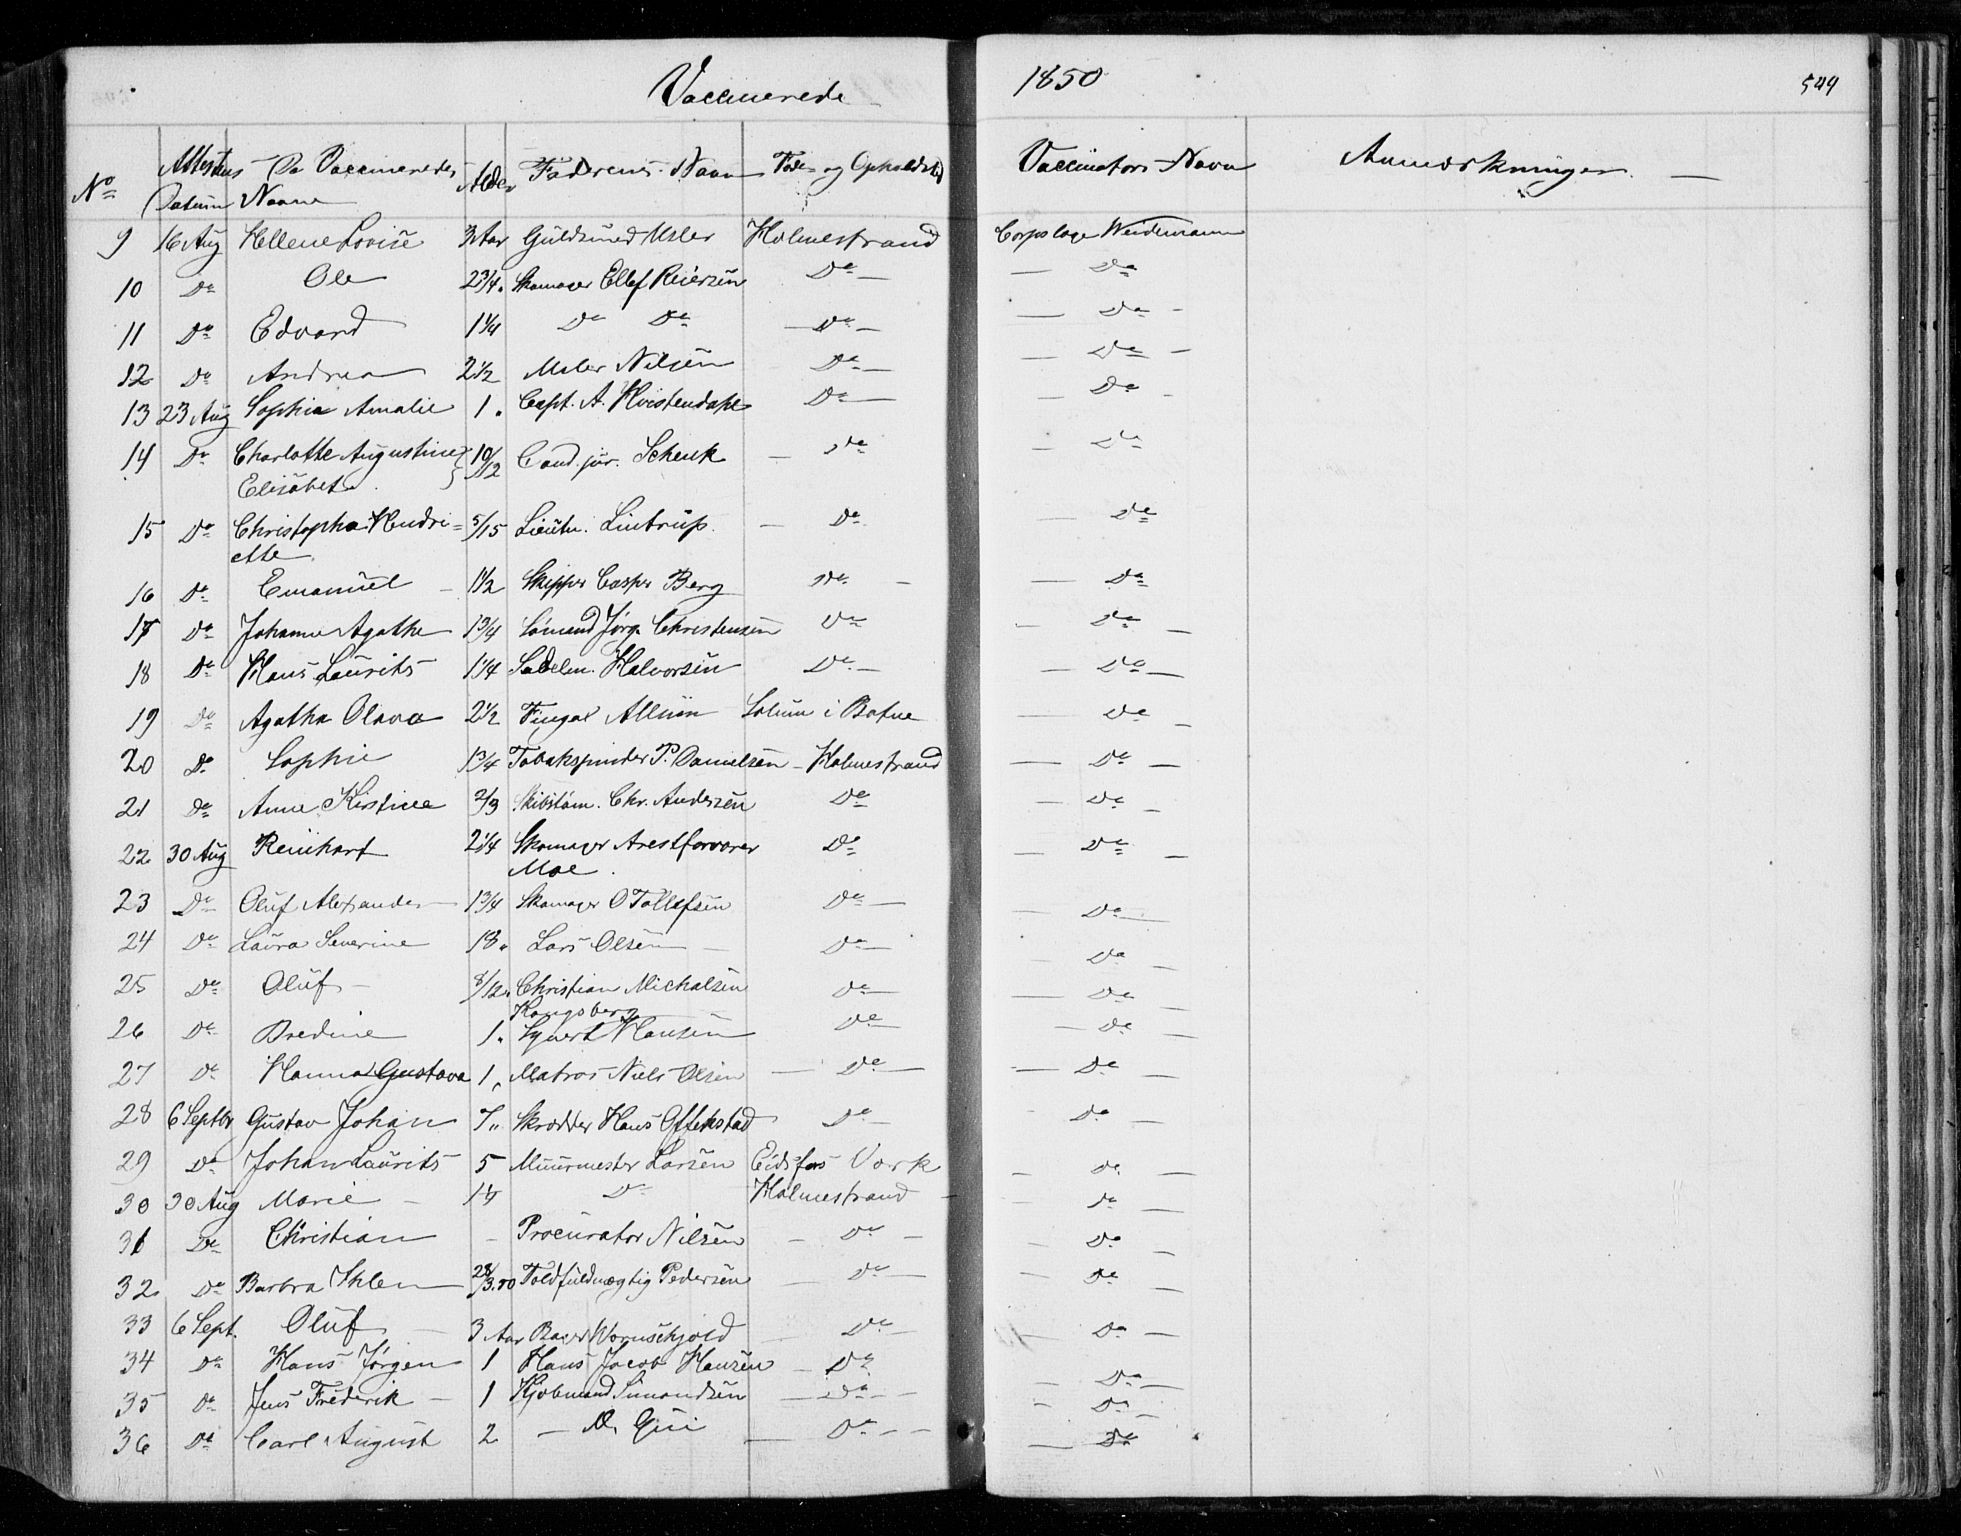 Vaccinerede 1850 549
No Attestens Datum De Vaccineredes Navne Alder Faderens Navn Føde og Opholdsted Vaccinators Navn Anmærkninger
9 16 Aug Hellene Lovise 3 Aar Guldsmed Usler Holmestrand Corpslæge Weidemann
10 Do Ole 2 3/4 Skomager Ellef Reiersen Do Do
11 Do Edvard 1 1/4 Do Do Do Do
12 Do Andrea 2 1/2 Maler Nilsen Do Do
13 23 Aug Sophie Amalie 1 Capt. A. Hvistendahl Do Do
14 Do Charlotte Augustine 10/12 Cand. jur. Schenk Do Do
Elisabet
15 Do Christopha Hendri= 5/15 Lieutn. Lintrup Do Do
ette
16 Do Emanuel 1 1/2 Skipper Casper Berg Do Do
17 Do Johanne Agathe 1 3/4 Sömand Jørg. Christensen Do Do
18 Do Hans Laurits 1 1/4 Sadelm. Halvorsen Do Do
19 Do Agatha Olava 2 1/2 Fingal Allum Solum i Botne Do
20 Do Sophie 1 3/4 Tobakspinder P. Danielsen Holmestrand Do
21 Do Anne Kirstine 2/3 Skibstöm. Chr. Andersen Do Do
22 30 Aug Reinhart 2 1/4 Skomager Arestforvarer Do Do
Moe
23 Do Oluf Alexander 1 3/4 Skomager O Tollefsen Do Do
24 Do Laura Severine 18 Lars Olsen Do Do
25 Do Oluf 8/12 Christian Michalsen Do Do
Kongsberg
26 Do Bredine 1 Syvert Hansen Do Do
27 Do Hanna Gustava 1 Matros Niels Olsen Do Do
28 6 Septbr Gustav Johan 7 Skrædder Hans Offenstad Do Do
29 Do Johan Laurits 5 Muurmester Larsen Eidsfos Værk Do
30 30 Aug Marie 1 1/4 Do Holmestrand Do
31 Do Christian - Procurator Nilsen Do Do
32 Do Barbra Thlen 28/3.50 Toldfuldmægtig Pedersen Do Do
33 6 Sept. Oluf 3 Aar Bager Wornschjold Do Do
34 Do Hans Jørgen 1 Hans Jacob Hansen Do Do
35 Do Jens Frederik 1 Kjøbmand Simondsen Do Do
36 Do Carl August 2 Do Do